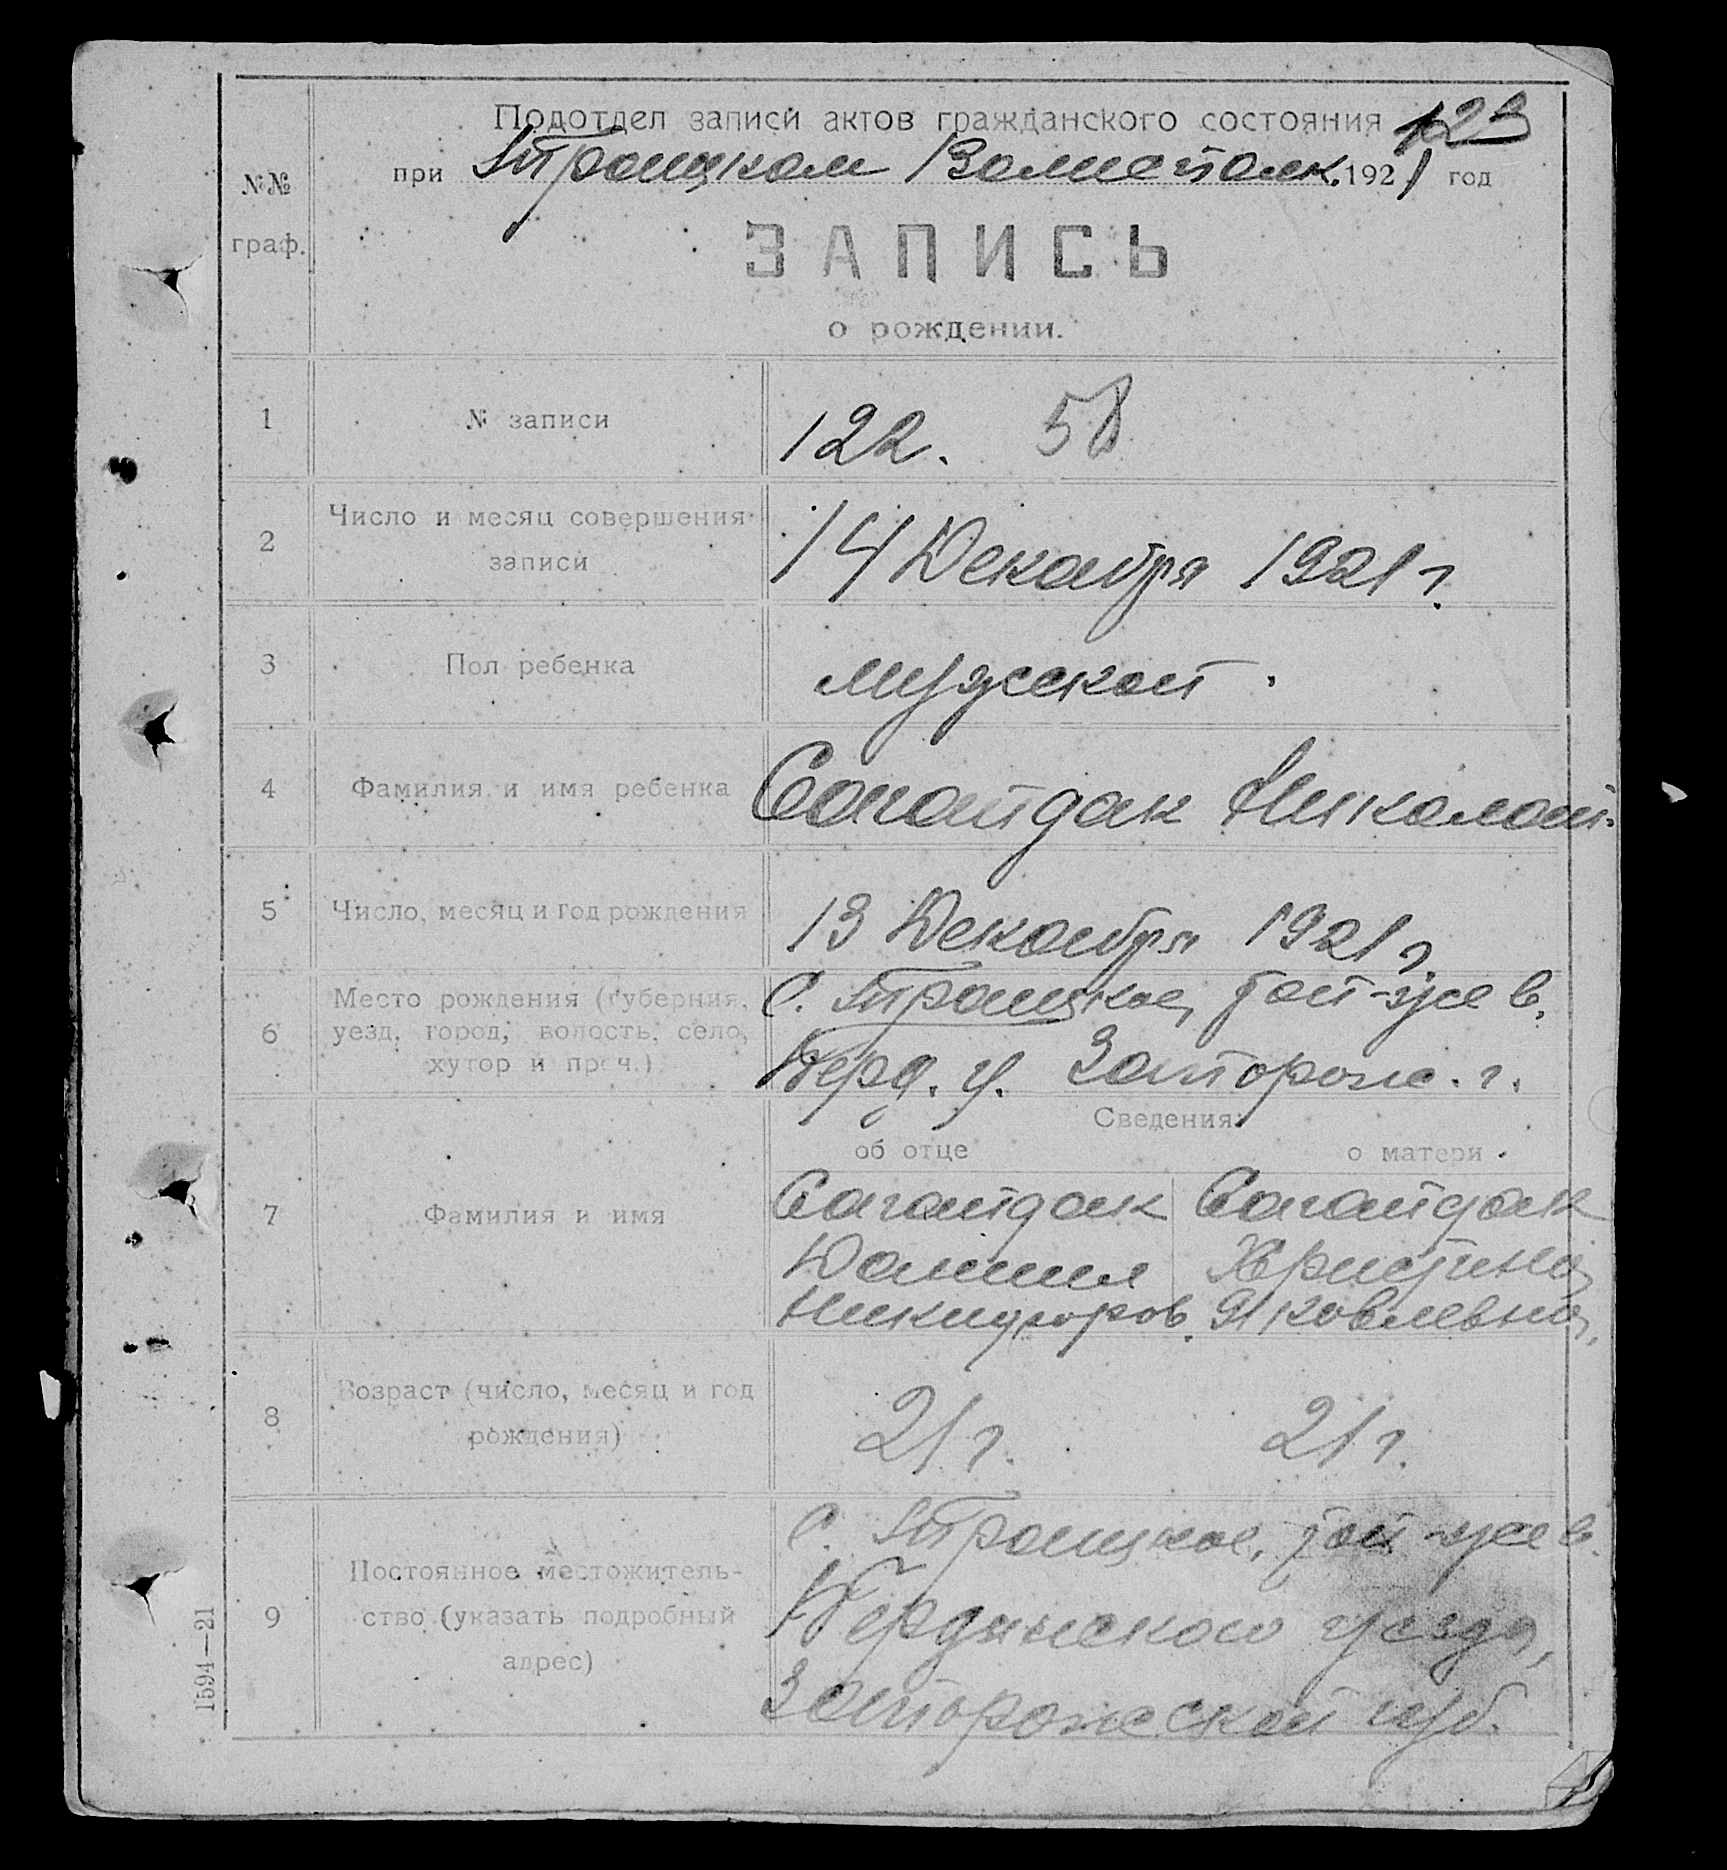 Подотдел записи актов гражданского состояния 123
при Троицком Волисполк. 1921 год
№№ граф.
ЗАПИСЬ
о рождении.
1 № записи 122. 58
2 Число и месяц совершения записи 14 Декабря 1921 г.
3 Пол ребенка мужской.
4 Фамилия и имя ребенка Сагайдак Николай.
5 Число, месяц и год рождения 13 Декабря 1921 г.
6 Место рождения (губерния, уезд, город, волость, село, хутор и проч.) С. Троицкое, той-же в.
Берд. у. Запорож. г.
Сведения:
об отце о матери
7 Фамилия и имя Сагайдак Сагайдак
Даниил Христина
Никифоров. Яковлевна,
8 Возраст (число, месяц и год рождения) 21 г. 21 г.
9 Постоянное местожитель-
ство (указать подробный
адрес)
С. Троицкое, той-же в.
Бердянского уезда,
Запорожской губ.
1594—21